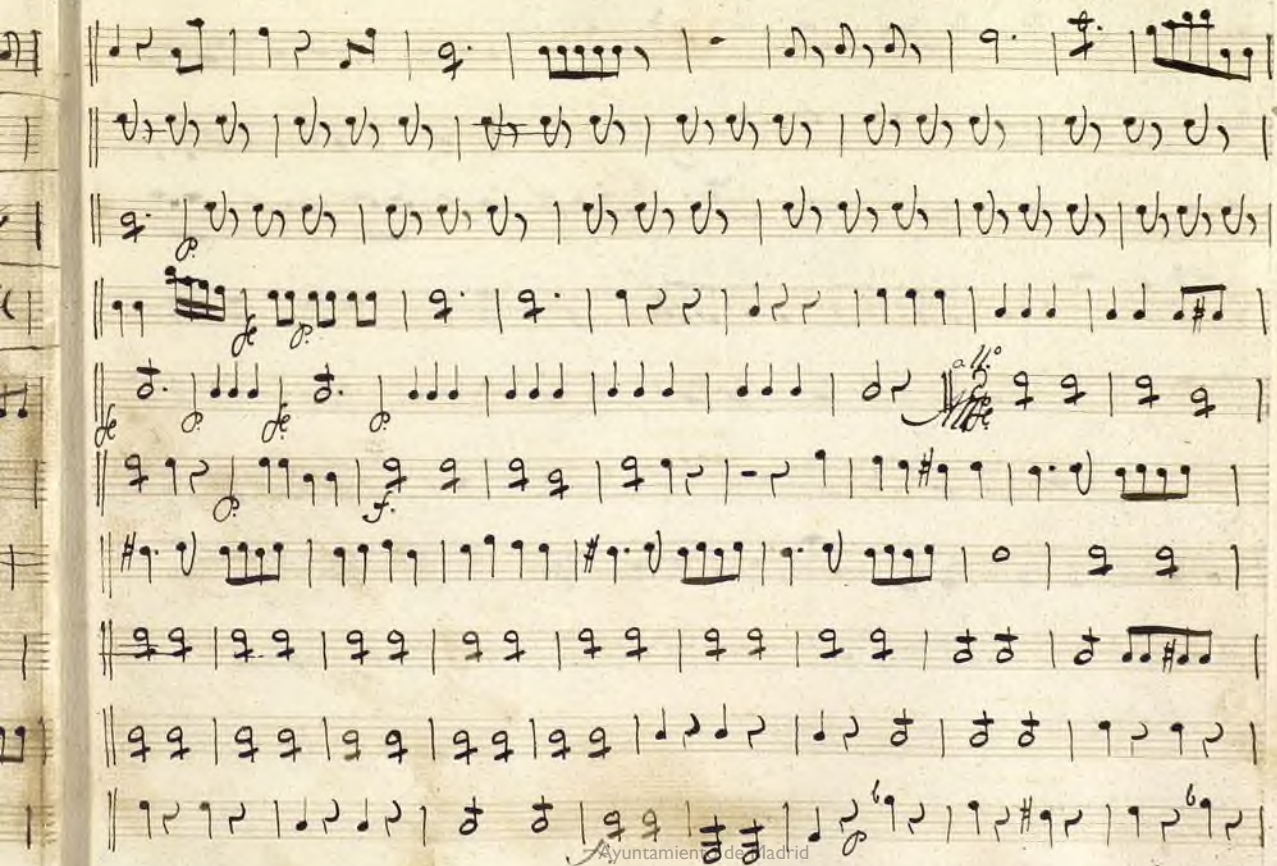 p.
fe p.
fe p. fe p. all.º
p. f.
p
Ayuntamiento de Madrid